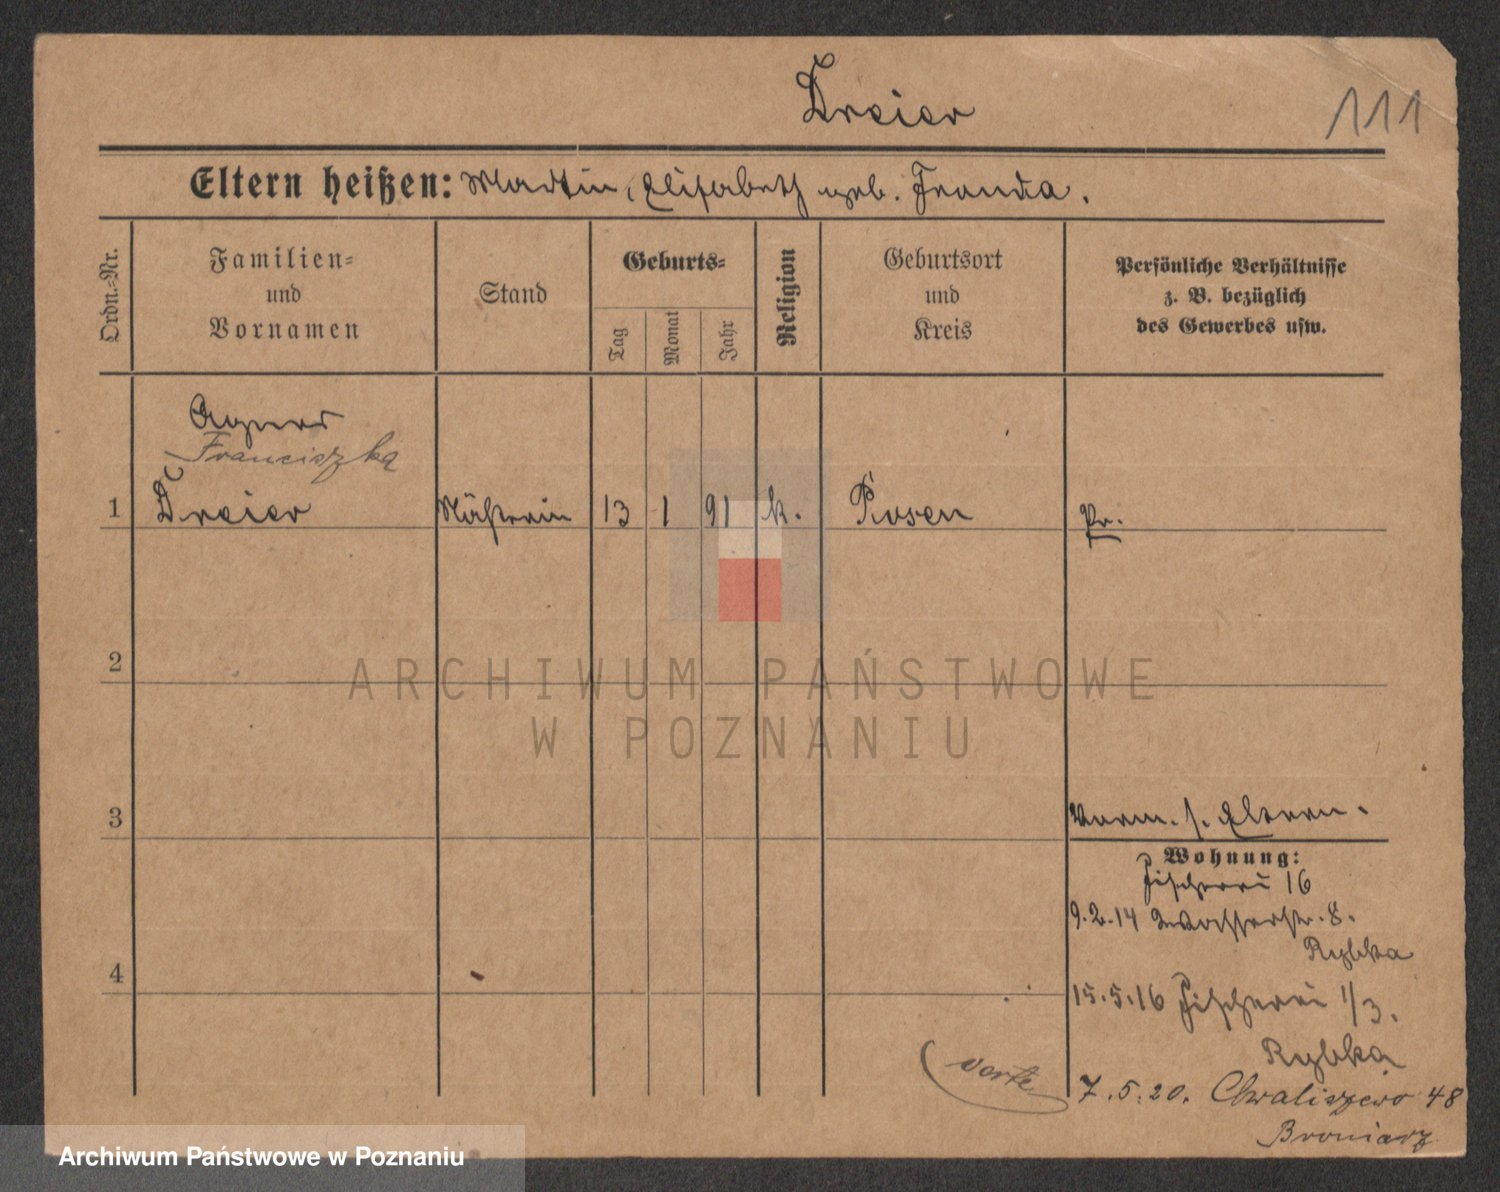 Dreier
111
Eltern heißen: Martin, Elisabeth geb. Franda.
Ordn.-Nr.
Familien-
und
Vornamen
Stand
Geburts-
Tag
Monat
Jahr
Religion
Geburtsort
und
Kreis
Persönliche Verhältnisse
z. B. bezüglich
des Gewerbes usw.
Agnes
Franciszka
1 Dreier Näherin 13 1 91 k. Posen Pr.
2
ARCHIWUM PAŃSTWOWE
W POZNANIU
3
Vorm. s. Eltern.
Wohnung:
Fischerei 16
9.2.14 Wasserstr. 8.
Rybka
4
15.5.16 Fischerei 1/3.
Rybka
(verte
7.5.20. Chwaliszewo 48
Broniarz
Archiwum Państwowe w Poznaniu